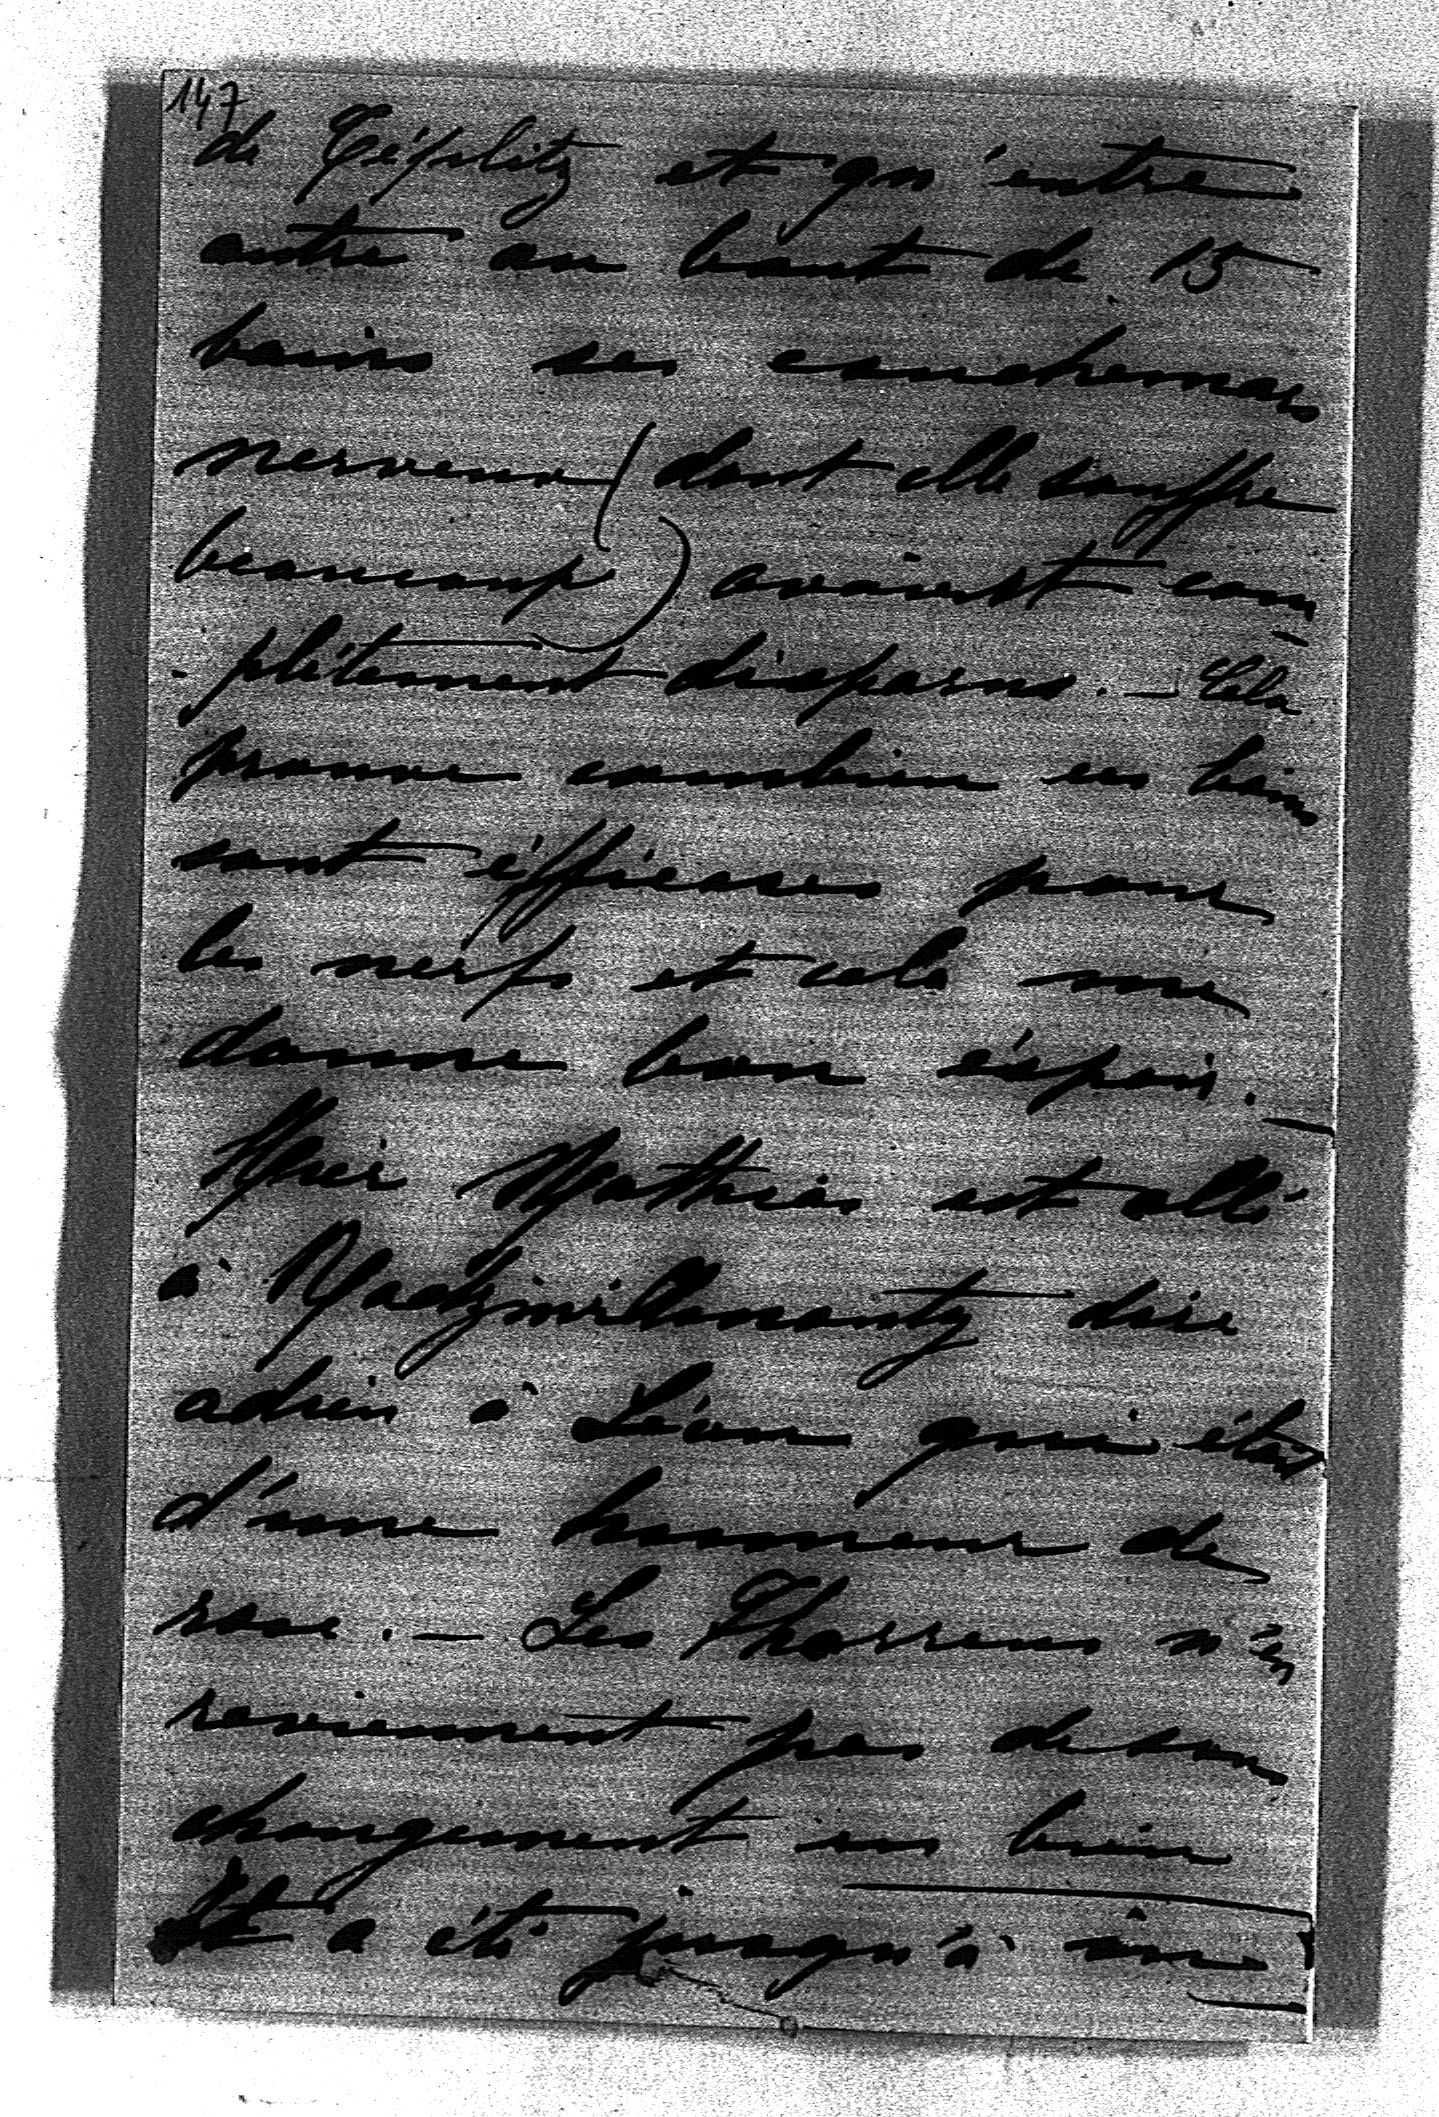 147
de Téplitz et qu'entre
autre au bout de 15
bains ses cauchemars
nerveux (dont elle souffre
beaucoup) avaient com
plètement disparus. — Cela
prouve combien ces bains
sont éfficases pour
les nerfs et cela me
donne bon éspoir. —
Hier Mathias est allé
à dire
adieu à Léon qui était
d'une humeur de
rose. — Les n'en
reviennent pas de son
changement en bien
Il a été jusqu'à une